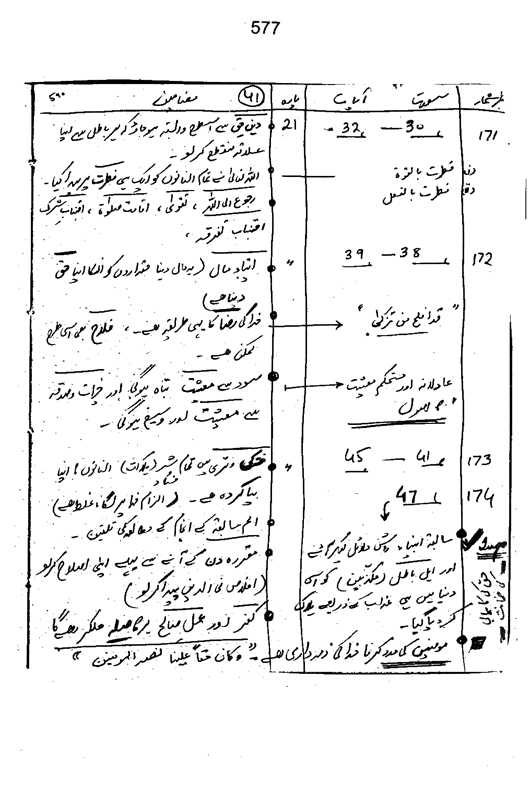 577
نمبر شمار سورت آیات پارہ ۴۱ مضامین ۵۹۰
171 30 — 32 21 دین حق سے اسطرح وابستہ ہوجاؤ کہ ہر باطل سے اپنا
علاقہ منقطع کرلو۔
فطرت بالقوۃ اللہ تعالیٰ نے تمام انسانوں کو ایک ہی فطرت پر پیدا کیا۔
فطرت بالفعل رجوع الی اللہ، تقویٰ، اقامت صلوٰۃ، اجتناب شرک
اجتناب تفرقہ،
172 38 — 39 " ایتاء مال (یہ مال دنیا حقداروں کو انکا اپنا حق
دینا ہے)
"قد افلح من تزکی" خدا کی رضا کا یہی طریقہ ہے۔، فلاح بھی اسی طرح
ممکن ہے۔
عادلانہ اور مستحکم معیشت سود سے معیشت تباہ ہوگی اور خیرات و صدقہ
اصول سے معیشت اور وسیع ہوگی۔
173 41 — 45 " خشکی و تری میں تمام شر فساد (ہلاکت) انسانوں کا اپنا
174 47 بپا کردہ ہے۔ (الزام خدا پر لگانا غلط ہے)
امم سابقہ کے انجام کے مطالعہ کی تلقین۔
سابقہ انبیاء روشن دلائل لیکر آئے مقررہ دن کے آنے سے پہلے اپنی اصلاح کرلو
اور اہل باطل (مکذبین) کو اسی (اخلاص فی الدین پیدا کرلو)
دنیا میں ہی عذاب کے ذریعے ہلاک
کر دیا گیا۔ کفر اور عمل صالح پر فاصلہ ہوکر رہے گا
حق کی کامیابی کی ضمانت
مومنین کی مدد کرنا خدا کی ذمہ داری ہے۔ "وکان حقاً علینا نصر المومنین"